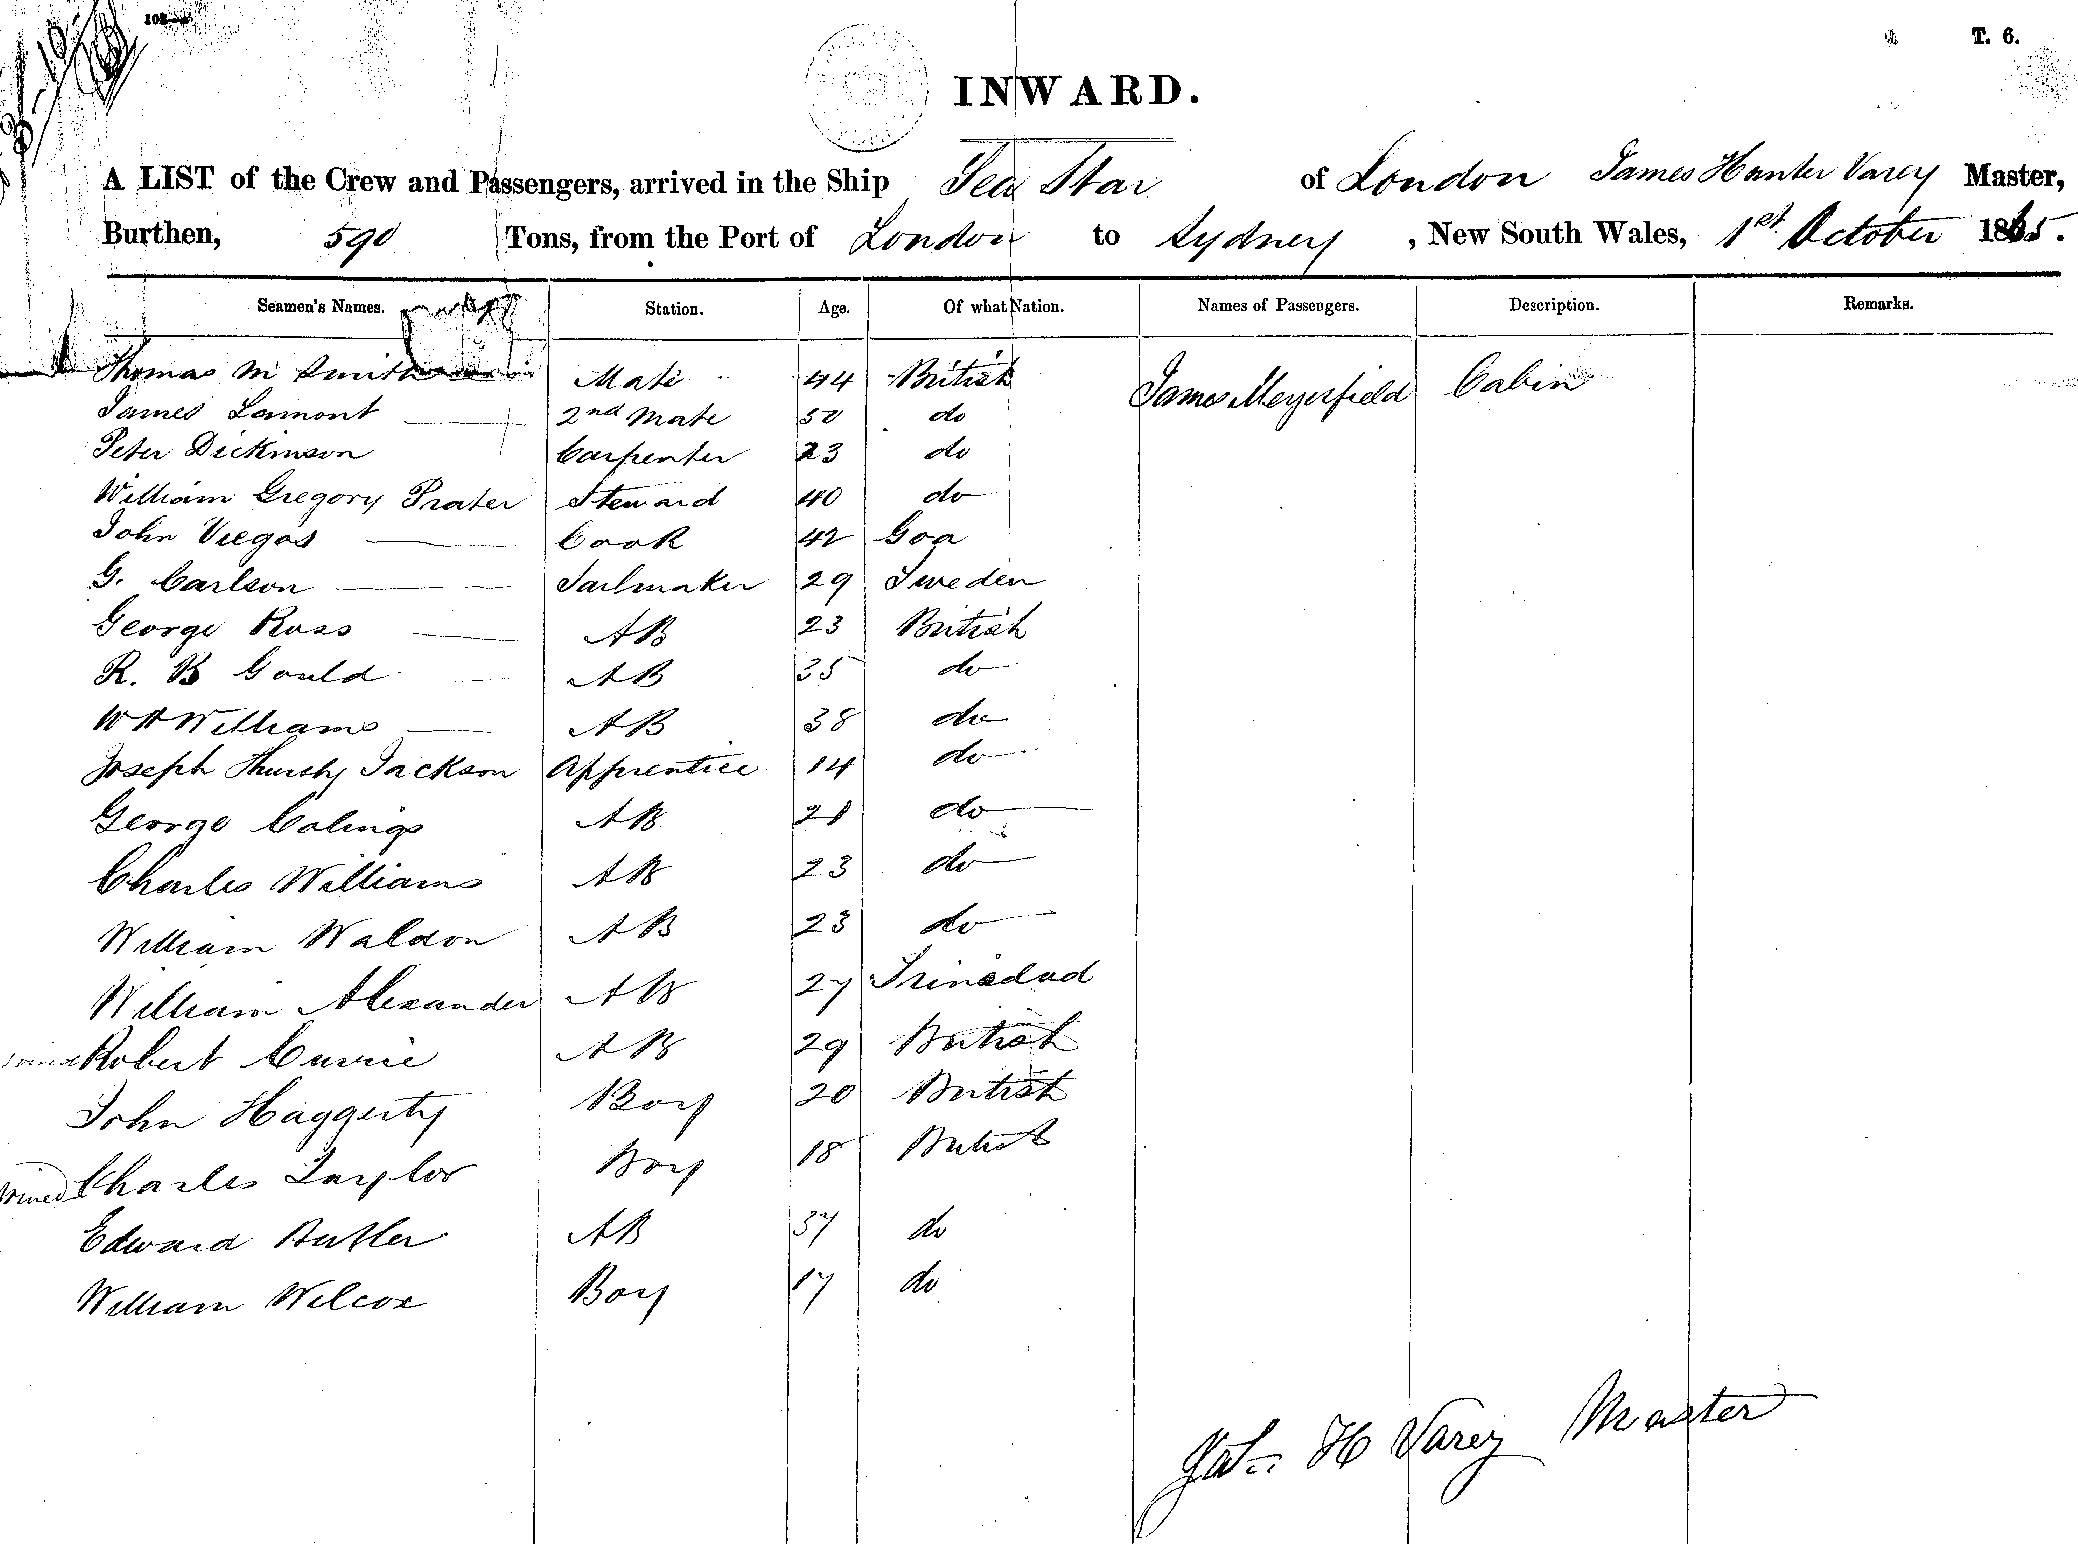 T. 6.
INWARD.
A LIST of the Crew and Passengers, arrived in the Ship Sea Star of London James Hunter Varey Master,
Burthen, 590 Tons, from the Port of London to Sydney, New South Wales, 1st October 1865.
Seamen's Names. Station. Age. Of what Nation. Names of Passengers. Description. Remarks.
Thomas M Smith Mate 44 British James Meyerfield Cabin
James Lamont 2nd Mate 50 do
Peter Dickinson Carpenter 23 do
William Gregory Prater Steward 40 do
John Viegas Cook 42 Goa
G. Carlson Sailmaker 29 Sweden
George Ross AB 23 British
R. B Gould AB 35 do
W H Williams AB 38 do
Joseph Thursby Jackson Apprentice 14 do
George Colings AB 21 do
Charles Williams AB 23 do
William Waldon AB 23 do
William Alexander AB 27 Trinidad
Robert Currie AB 29 British
John Haggerty Boy 20 British
Charles Taylor Boy 18 British
Edward Butler AB 37 do
William Wilcox Boy 17 do
H Varey Master